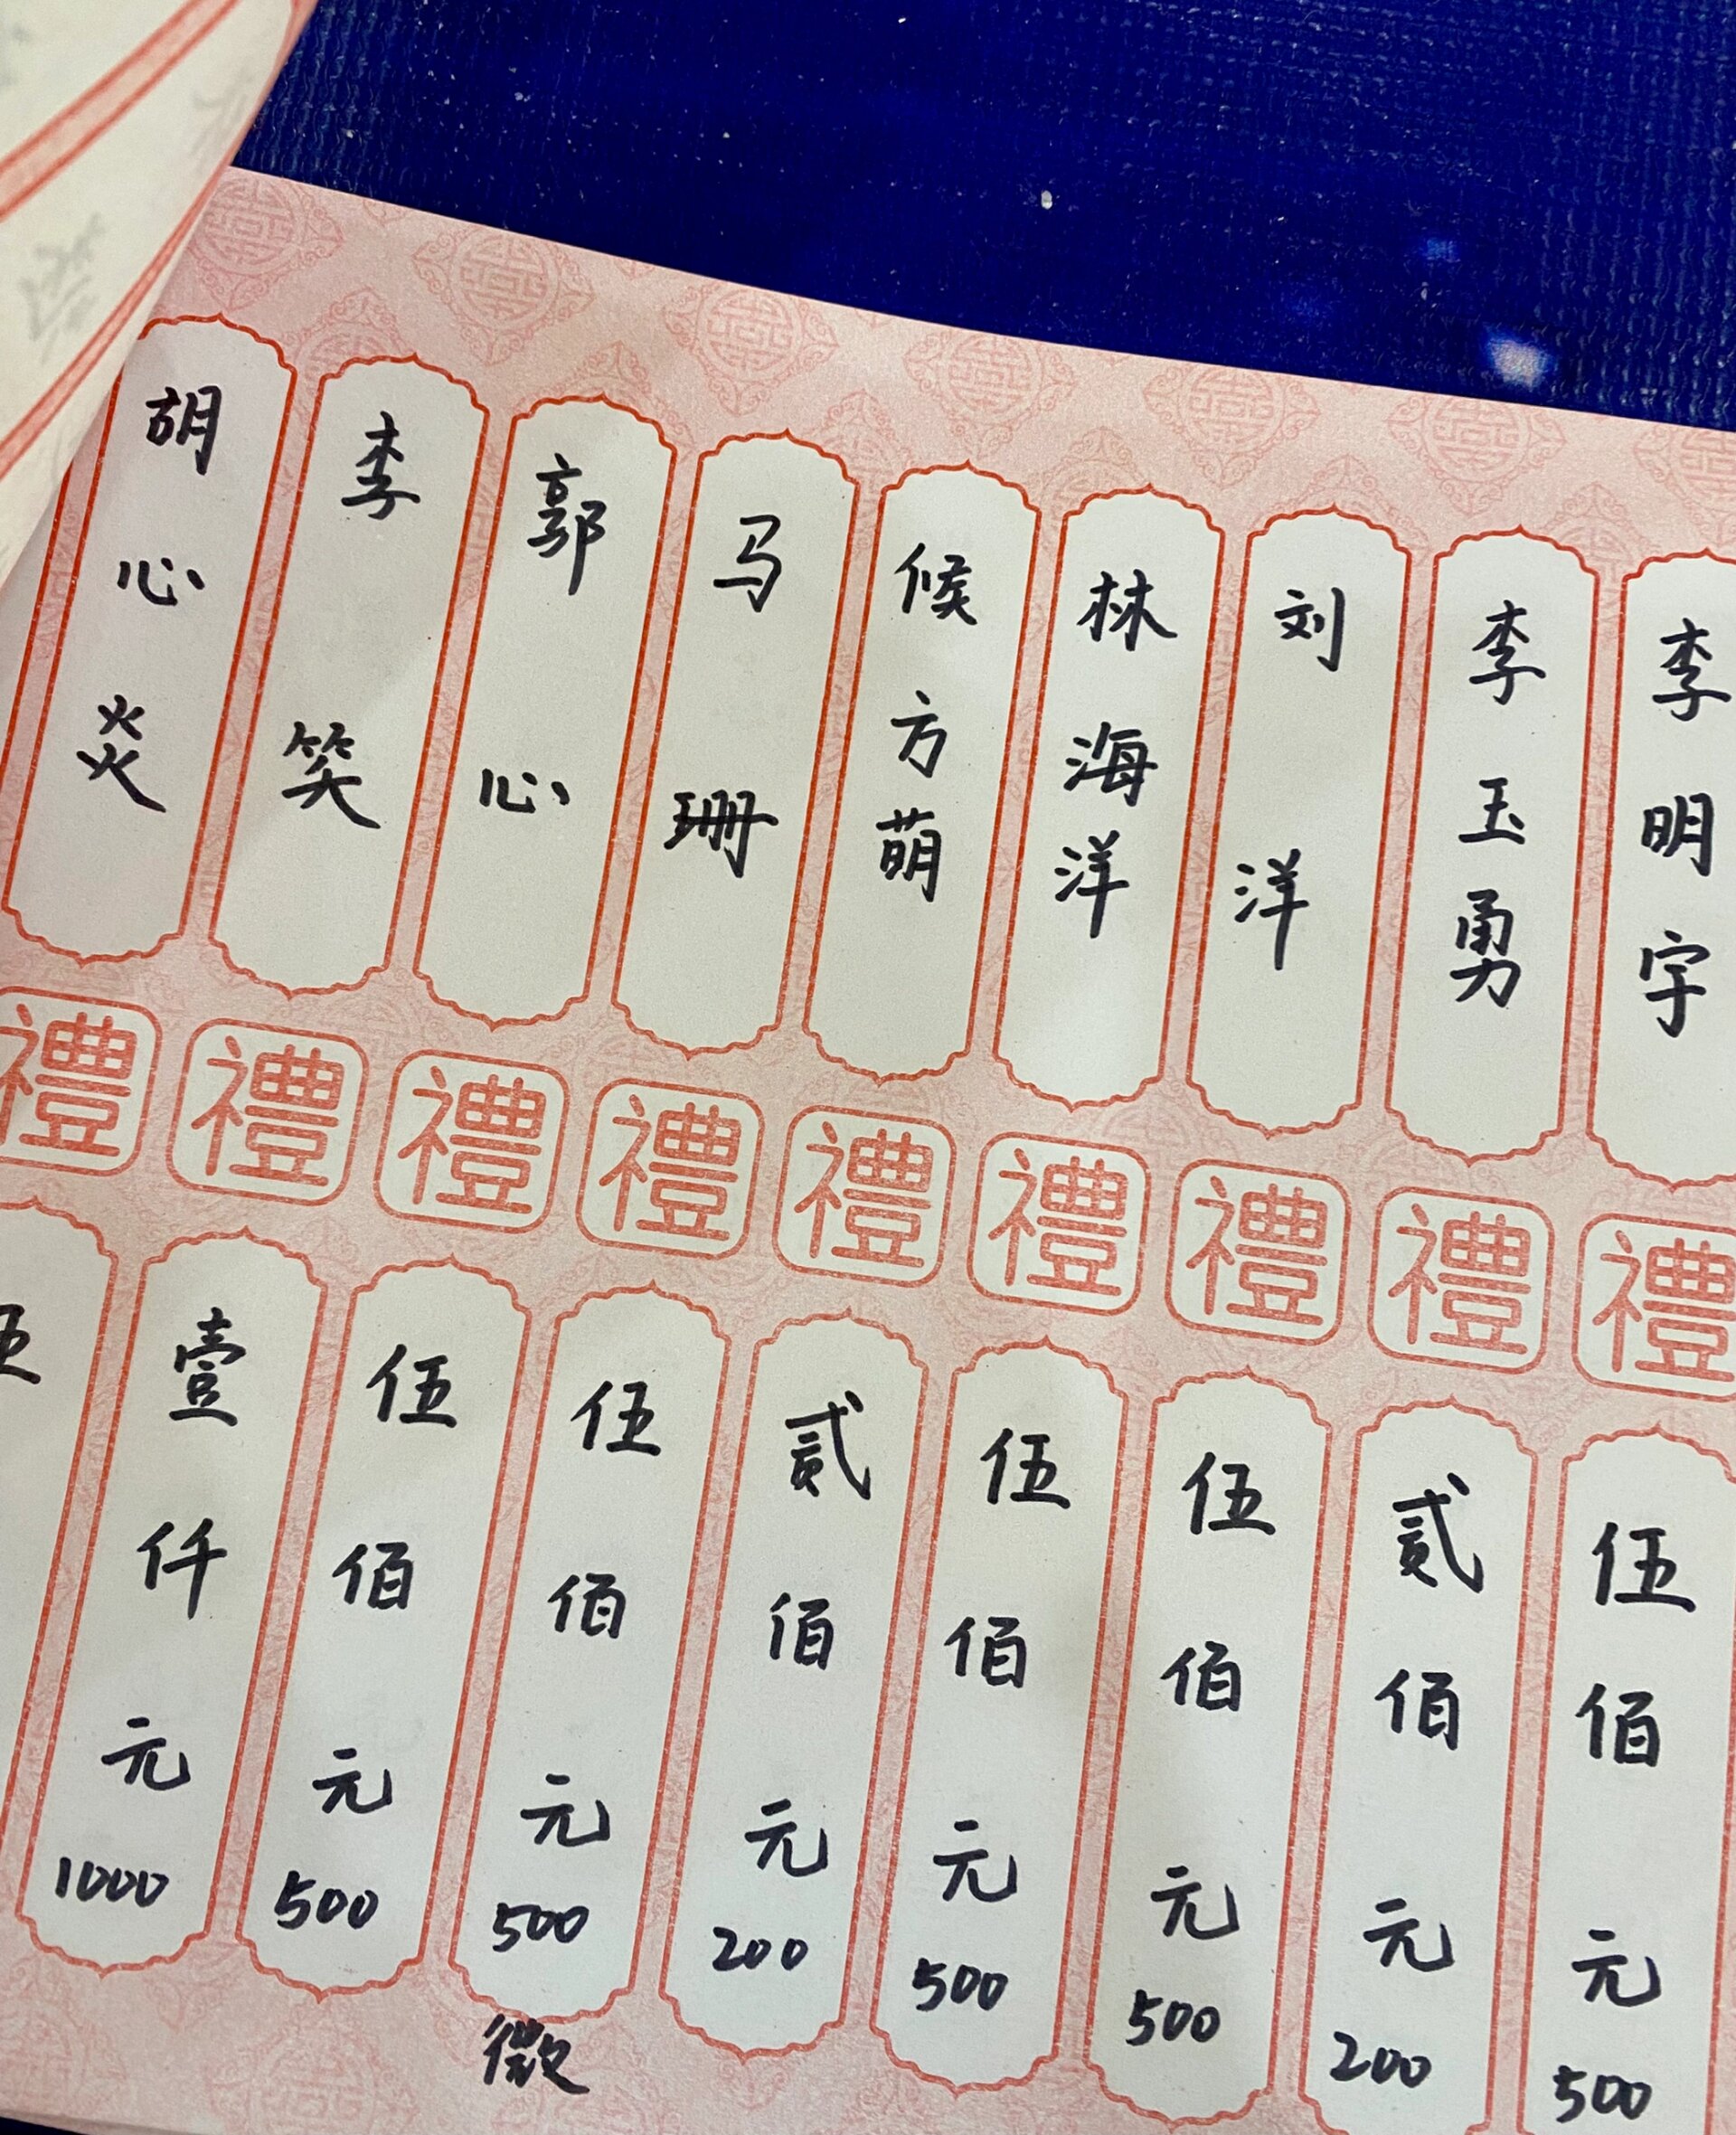 李明宇
李玉勇
刘洋
林海洋
候方萌
马珊
郭心
李笑
胡心炎
禮
禮
禮
禮
禮
禮
禮
禮
禮
伍佰元
500
貳佰元
200
伍佰元
500
伍佰元
500
貳佰元
200
伍佰元
500
微
伍佰元
500
壹仟元
1000